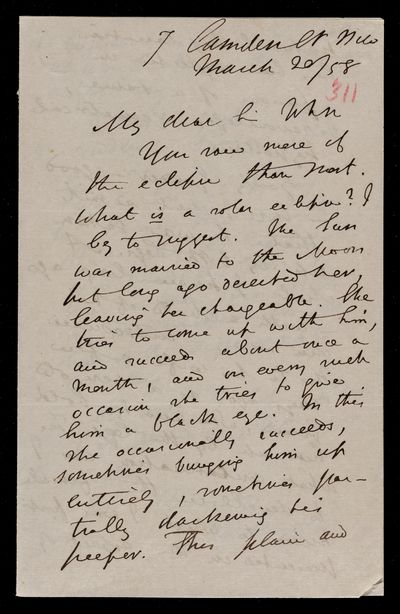 7 Camden St N W
March 20/58
311
My dear Sir John
You saw more of
the eclipse than most.
What is a solar eclipse? I
beg to suggest. The Sun
was married to the Moon
but long ago deserted her,
leaving her chargeable. She
tries to come up with him,
and succeeds about once a
month, and on every such
occasion she tries to give
him a black eye. In this
she occasionally succeeds,
sometimes bunging him up
entirely, sometimes par-
tially darkening his
peeper. This plain and